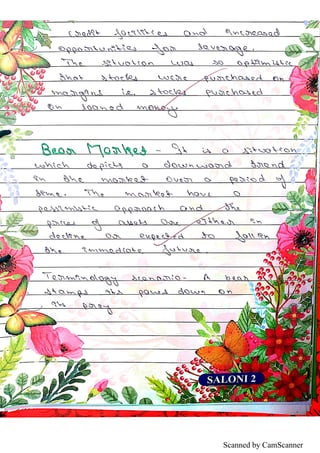 credit facilities and increased
opportunities for leverage.
The situation was so optimistic
that stocks were purchased on
margins i.e. stocks purchased
on loaned money
Bear Market - It is a situation
which depicts a downward trend
in the market over a period of
time. The market have a
pessimistic approach and the
prices of assets are either in
decline or expected to fall in
the immediate future.
Terminology scenario - A bear
stamps the paws down on
the prey
SALONI 2
Scanned by CamScanner